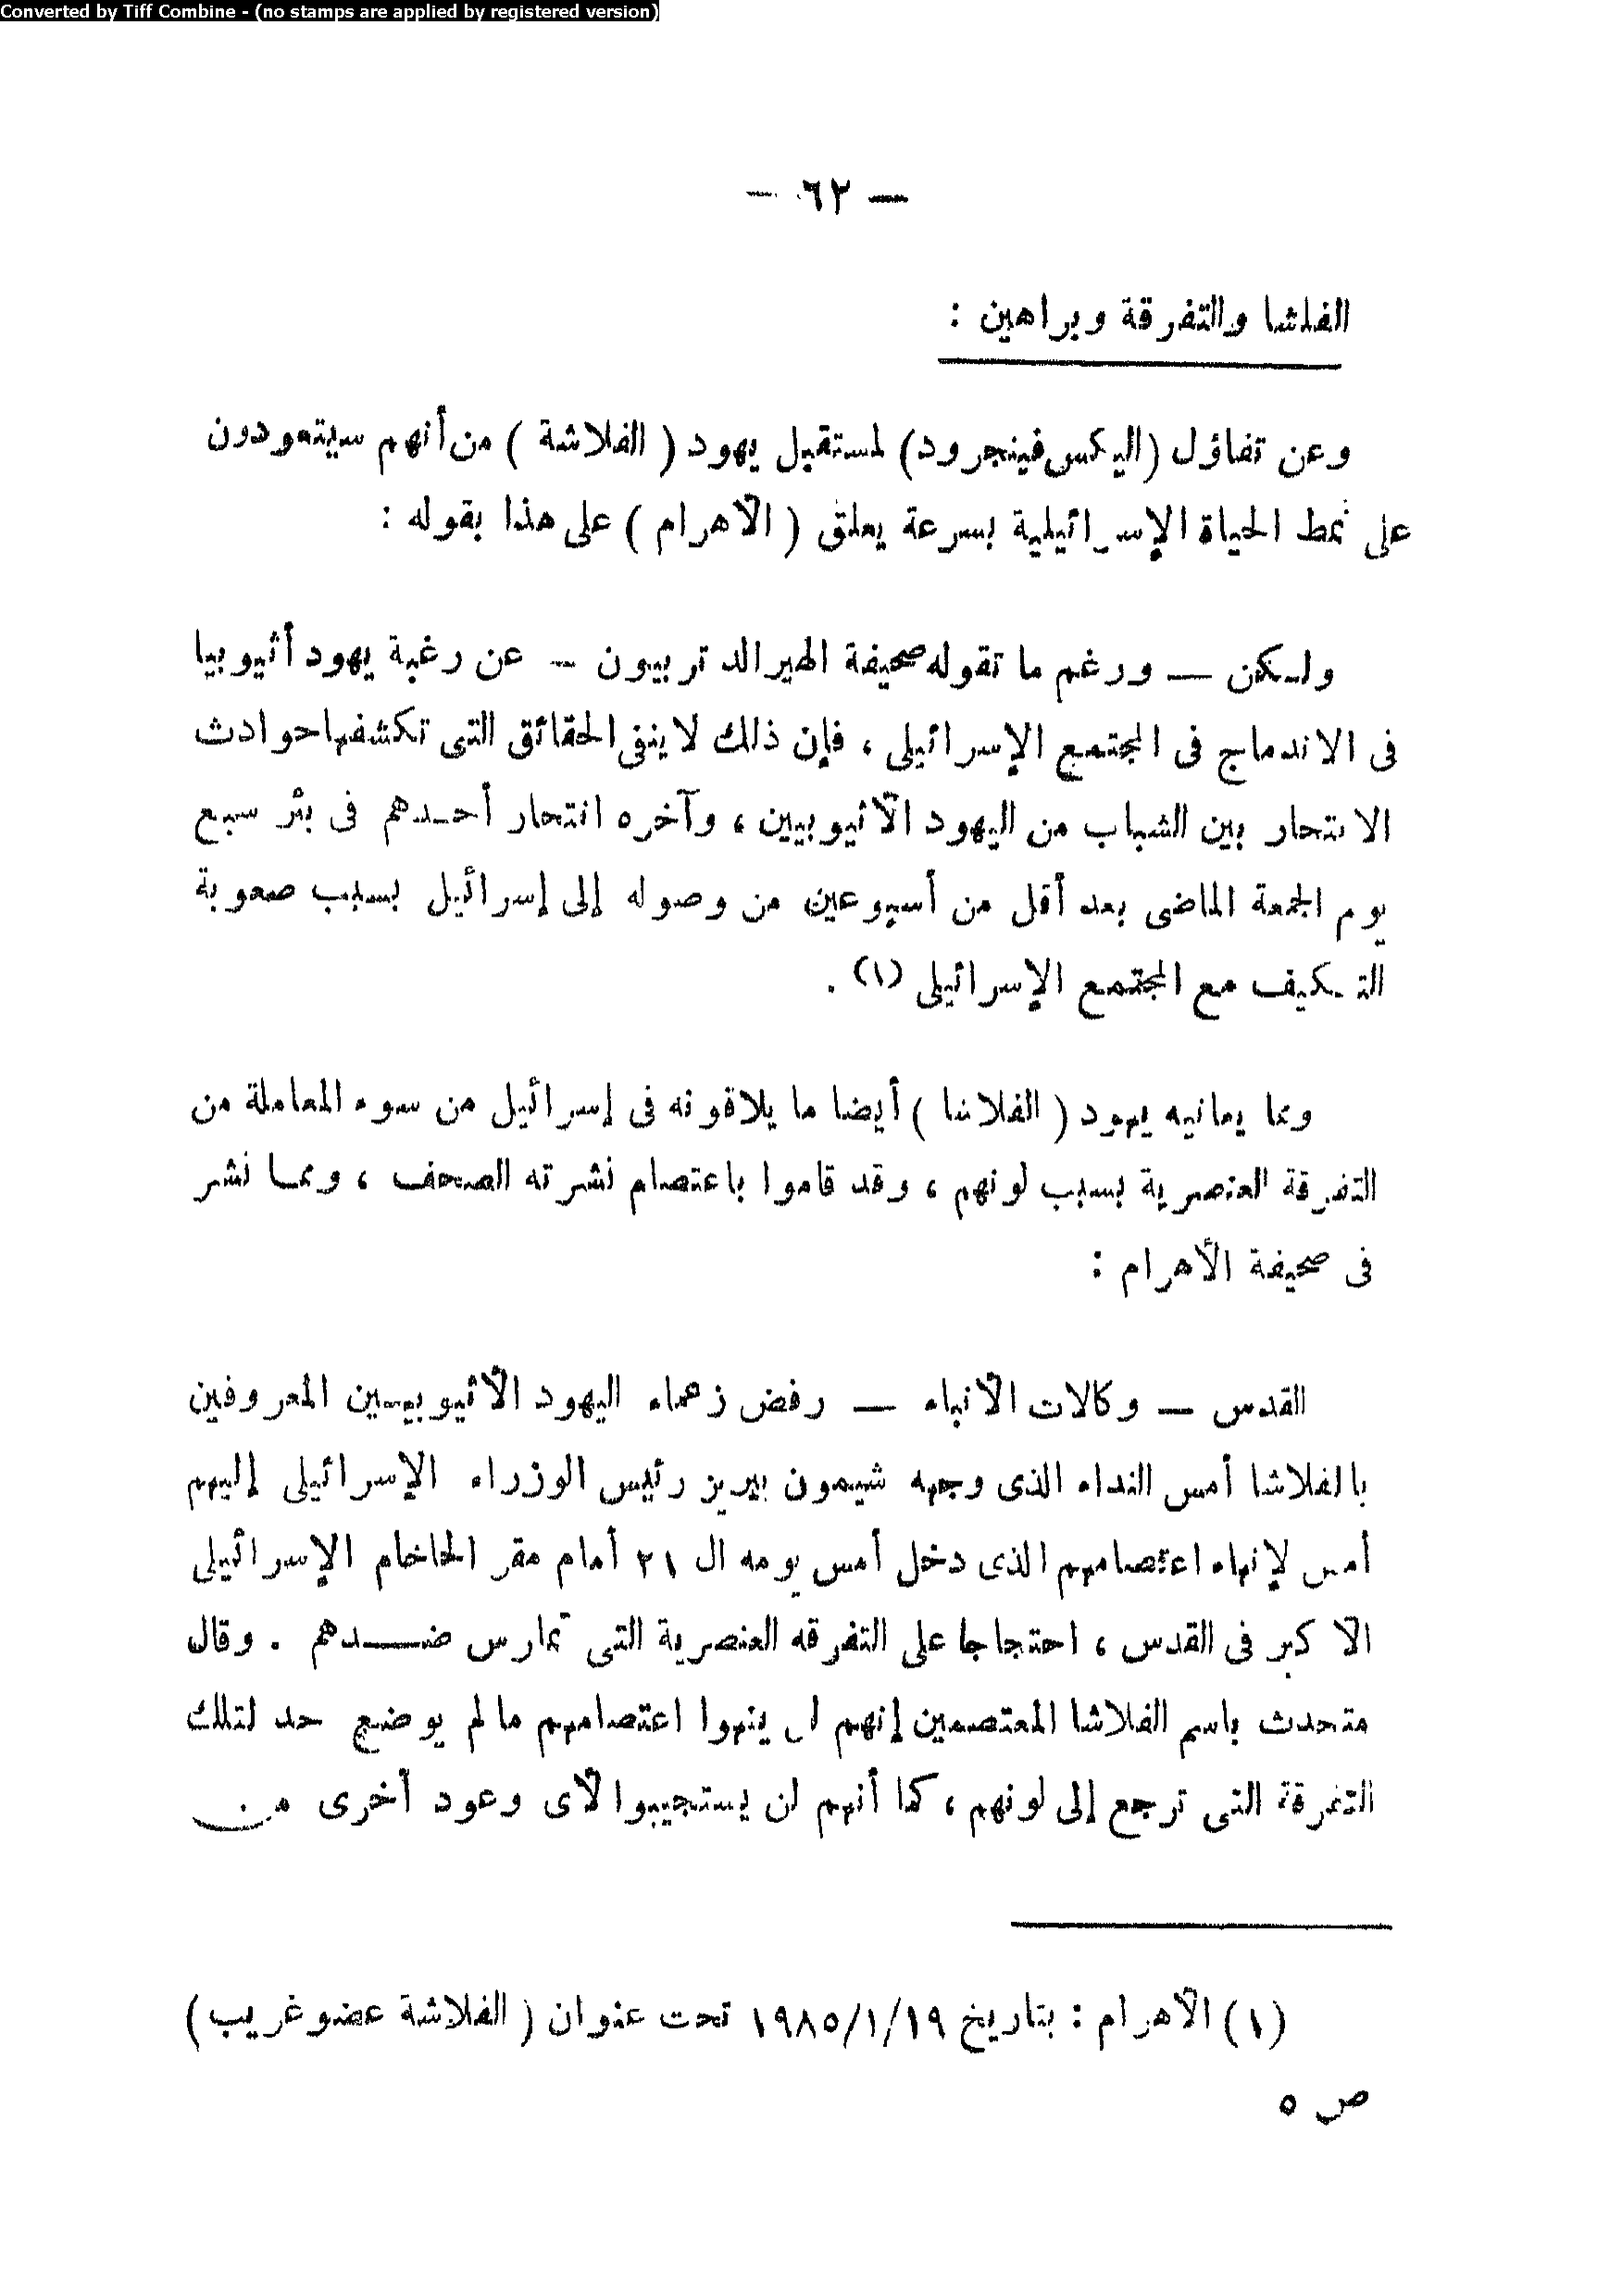 Converted by Tiff Combine - (no stamps are applied by registered version)
— ٦٢ —
الفلشا والتفرقة وبراهين :
وعن تفاؤل (اليكس فينجرود) لمستقبل يهود ( الفلاشة ) من أنهم سيتعودون
على نمط الحياة الإسرائيلية بسرعة يعلق ( الأهرام ) على هذا بقوله :
ولكن — ورغم ما تقوله صحيفة الهيرالد تربيون — عن رغبة يهود أثيوبيا
فى الاندماج فى المجتمع الإسرائيلى ، فإن ذلك لاينفى الحقائق التى تكشفها حوادث
الانتحار بين الشباب من اليهود الأثيوبيين ، وآخره انتحار أحدهم فى بئر سبع
يوم الجمعة الماضى بعد أقل من أسبوعين من وصوله إلى إسرائيل بسبب صعوبة
التكيف مع المجتمع الإسرائيلى (١) .
ومما يعانيه يهود ( الفلاشا ) أيضا ما يلاقونه فى إسرائيل من سوء المعاملة من
التفرقة العنصرية بسبب لونهم ، وقد قاموا باعتصام نشرته الصحف ، ومما نشر
فى صحيفة الأهرام :
القدس — وكالات الأنباء — رفض زعماء اليهود الأثيوبيين المعروفين
بالفلاشا أمس النداء الذى وجهه شيمون بيريز رئيس الوزراء الإسرائيلى إليهم
أمس لإنهاء اعتصامهم الذى دخل أمس يومه ال ٢١ أمام مقر الحاخام الإسرائيلى
الأكبر فى القدس ، احتجاجا على التفرقه العنصرية التى تمارس ضدهم . وقال
متحدث باسم الفلاشا المعتصمين إنهم لن ينهوا اعتصامهم مالم يوضع حد لتلك
التفرقة التى ترجع إلى لونهم ، كما أنهم لن يستجيبوا لأى وعود أخرى من
(١) الأهرام : بتاريخ ١٩٨٥/١/١٩ تحت عنوان ( الفلاشة عضو غريب )
ص ٥